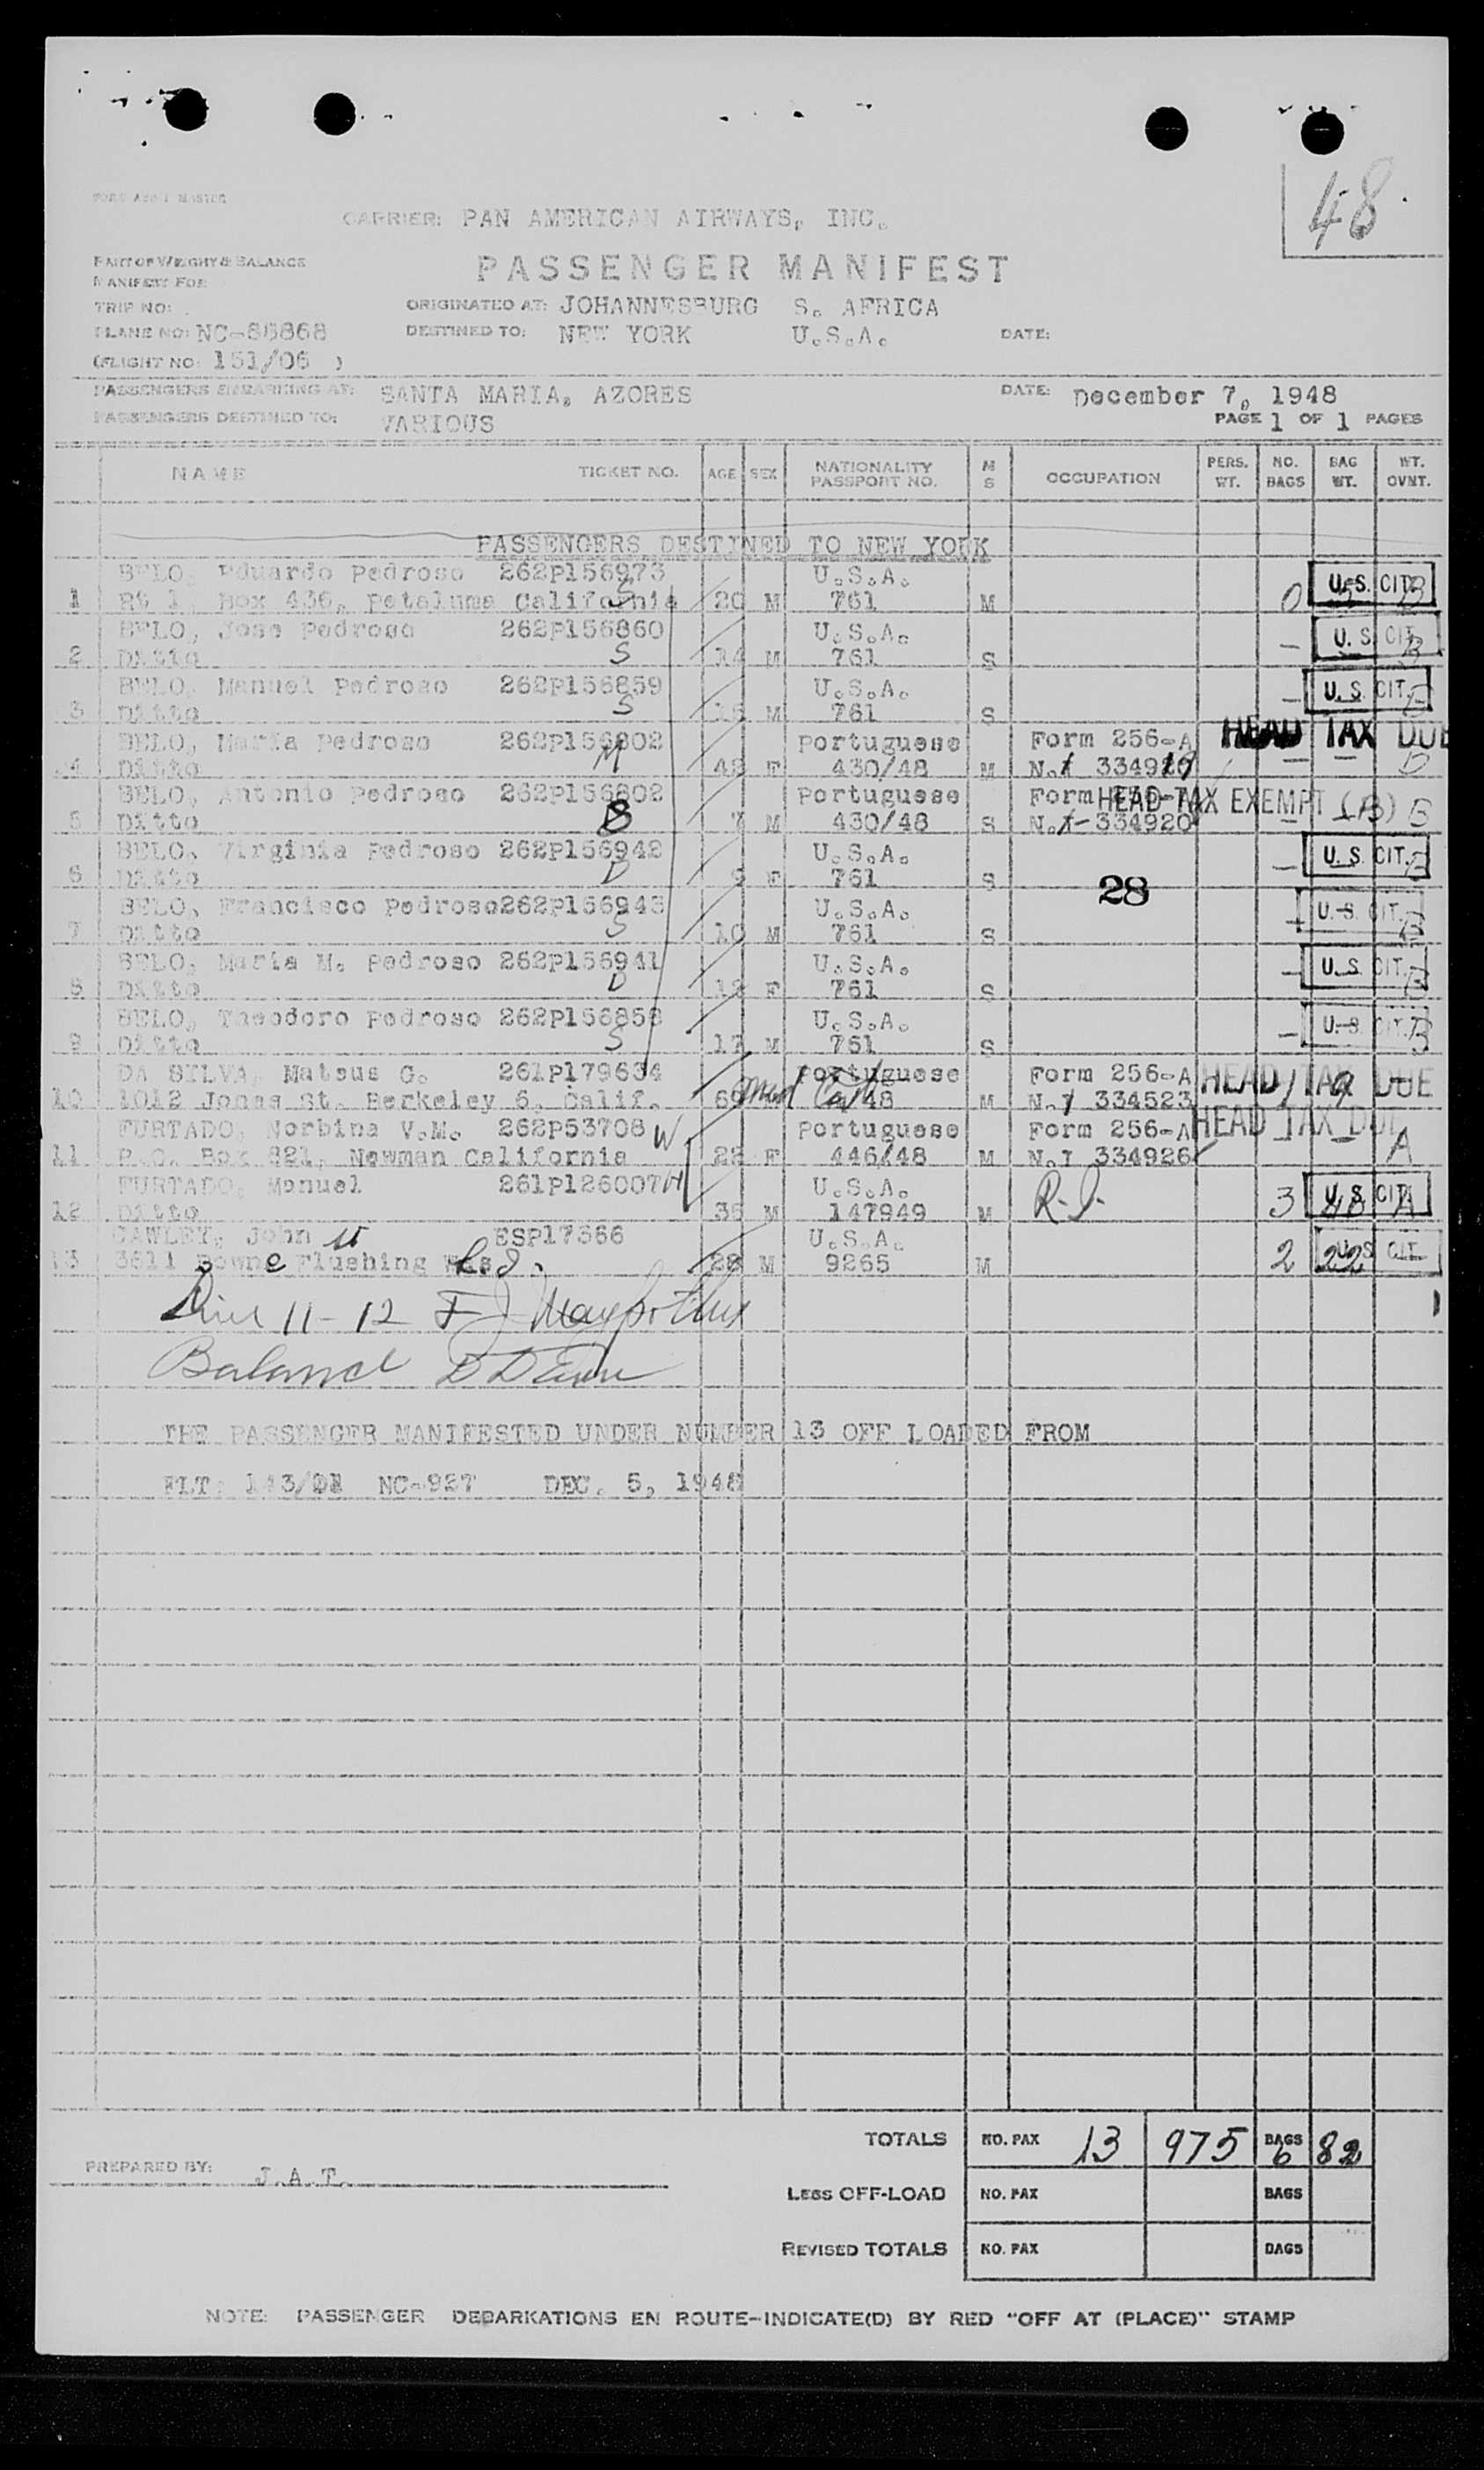 48
CARRIER: PAN AMERICAN AIRWAYS, INC.
PART OF WEIGHT & BALANCE
MANIFEST FOR:
PASSENGER MANIFEST
TRIP NO:
ORIGINATED AT: JOHANNESBURG S. AFRICA
PLANE NO: NC-88868
DESTINED TO: NEW YORK U.S.A. DATE:
(FLIGHT NO: 151/06 )
PASSENGERS EMBARKING AT: SANTA MARIA, AZORES DATE: December 7, 1948
PASSENGERS DESTINED TO: VARIOUS PAGE 1 OF 1 PAGES
NAME TICKET NO. AGE SEX NATIONALITY PASSPORT NO. M S OCCUPATION PERS. WT. NO. BAGS BAG WT. WT. OVNT.
PASSENGERS DESTINED TO NEW YORK
BELO, Eduardo Pedroso 262P156973 U.S.A.
1 Rt 1, Box 436, Petaluma California S 20 M 761 M 0 U.S. CIT. B
BELO, Jose Pedroso 262P156860 U.S.A.
2 Ditto S 14 M 761 S - U.S. CIT. B
BELO, Manuel Pedroso 262P156859 U.S.A.
3 Ditto S 16 M 761 S - U.S. CIT. B
BELO, Maria Pedroso 262P156802 Portuguese Form 256-A HEAD TAX DUE
4 Ditto M 48 F 430/48 M N.I 334919 - - B
BELO, Antonio Pedroso 262P156802 Portuguese Form HEAD TAX EXEMPT (B) B
5 Ditto S 7 M 430/48 S N.I-334920 -
BELO, Virginia Pedroso 262P156942 U.S.A.
6 Ditto D 9 F 761 S - U.S. CIT. B
28
BELO, Francisco Pedroso 262P156943 U.S.A.
7 Ditto S 10 M 761 S - U.S. CIT. B
BELO, Maria M. Pedroso 262P156941 U.S.A.
8 Ditto D 12 F 761 S - U.S. CIT. B
BELO, Theodoro Pedroso 262P156858 U.S.A.
9 Ditto S 17 M 761 S - U.S. CIT. B
DA SILVA, Mateus G. 261P179634 Portuguese Form 256-A HEAD TAX DUE
10 1012 Jones St. Berkeley 6, Calif. 48 M N.I 334523 1 9 -
FURTADO, Norbina V.M. 262P53708 W Portuguese Form 256-A HEAD TAX DUE
11 P.O. Box 821, Newman California 28 F 446/48 M N.I 334926 - - A
FURTADO, Manuel 261P126007 H U.S.A.
12 Ditto 36 M 147949 M 3 U.S. CIT. A
CAWLEY, John ESP17366 U.S.A.
13 3611 Bowne Flushing 28 M 9265 M 2 22 U.S. CIT.
11-12
Balance
THE PASSENGER MANIFESTED UNDER NUMBER 13 OFF LOADED FROM
FLT: NC-927 DEC. 5, 1948
TOTALS NO. PAX 13 975 BAGS 6 82
PREPARED BY: J.A.T.
LESS OFF-LOAD NO. PAX BAGS
REVISED TOTALS NO. PAX BAGS
NOTE: PASSENGER DEBARKATIONS EN ROUTE-INDICATE(D) BY RED "OFF AT (PLACE)" STAMP